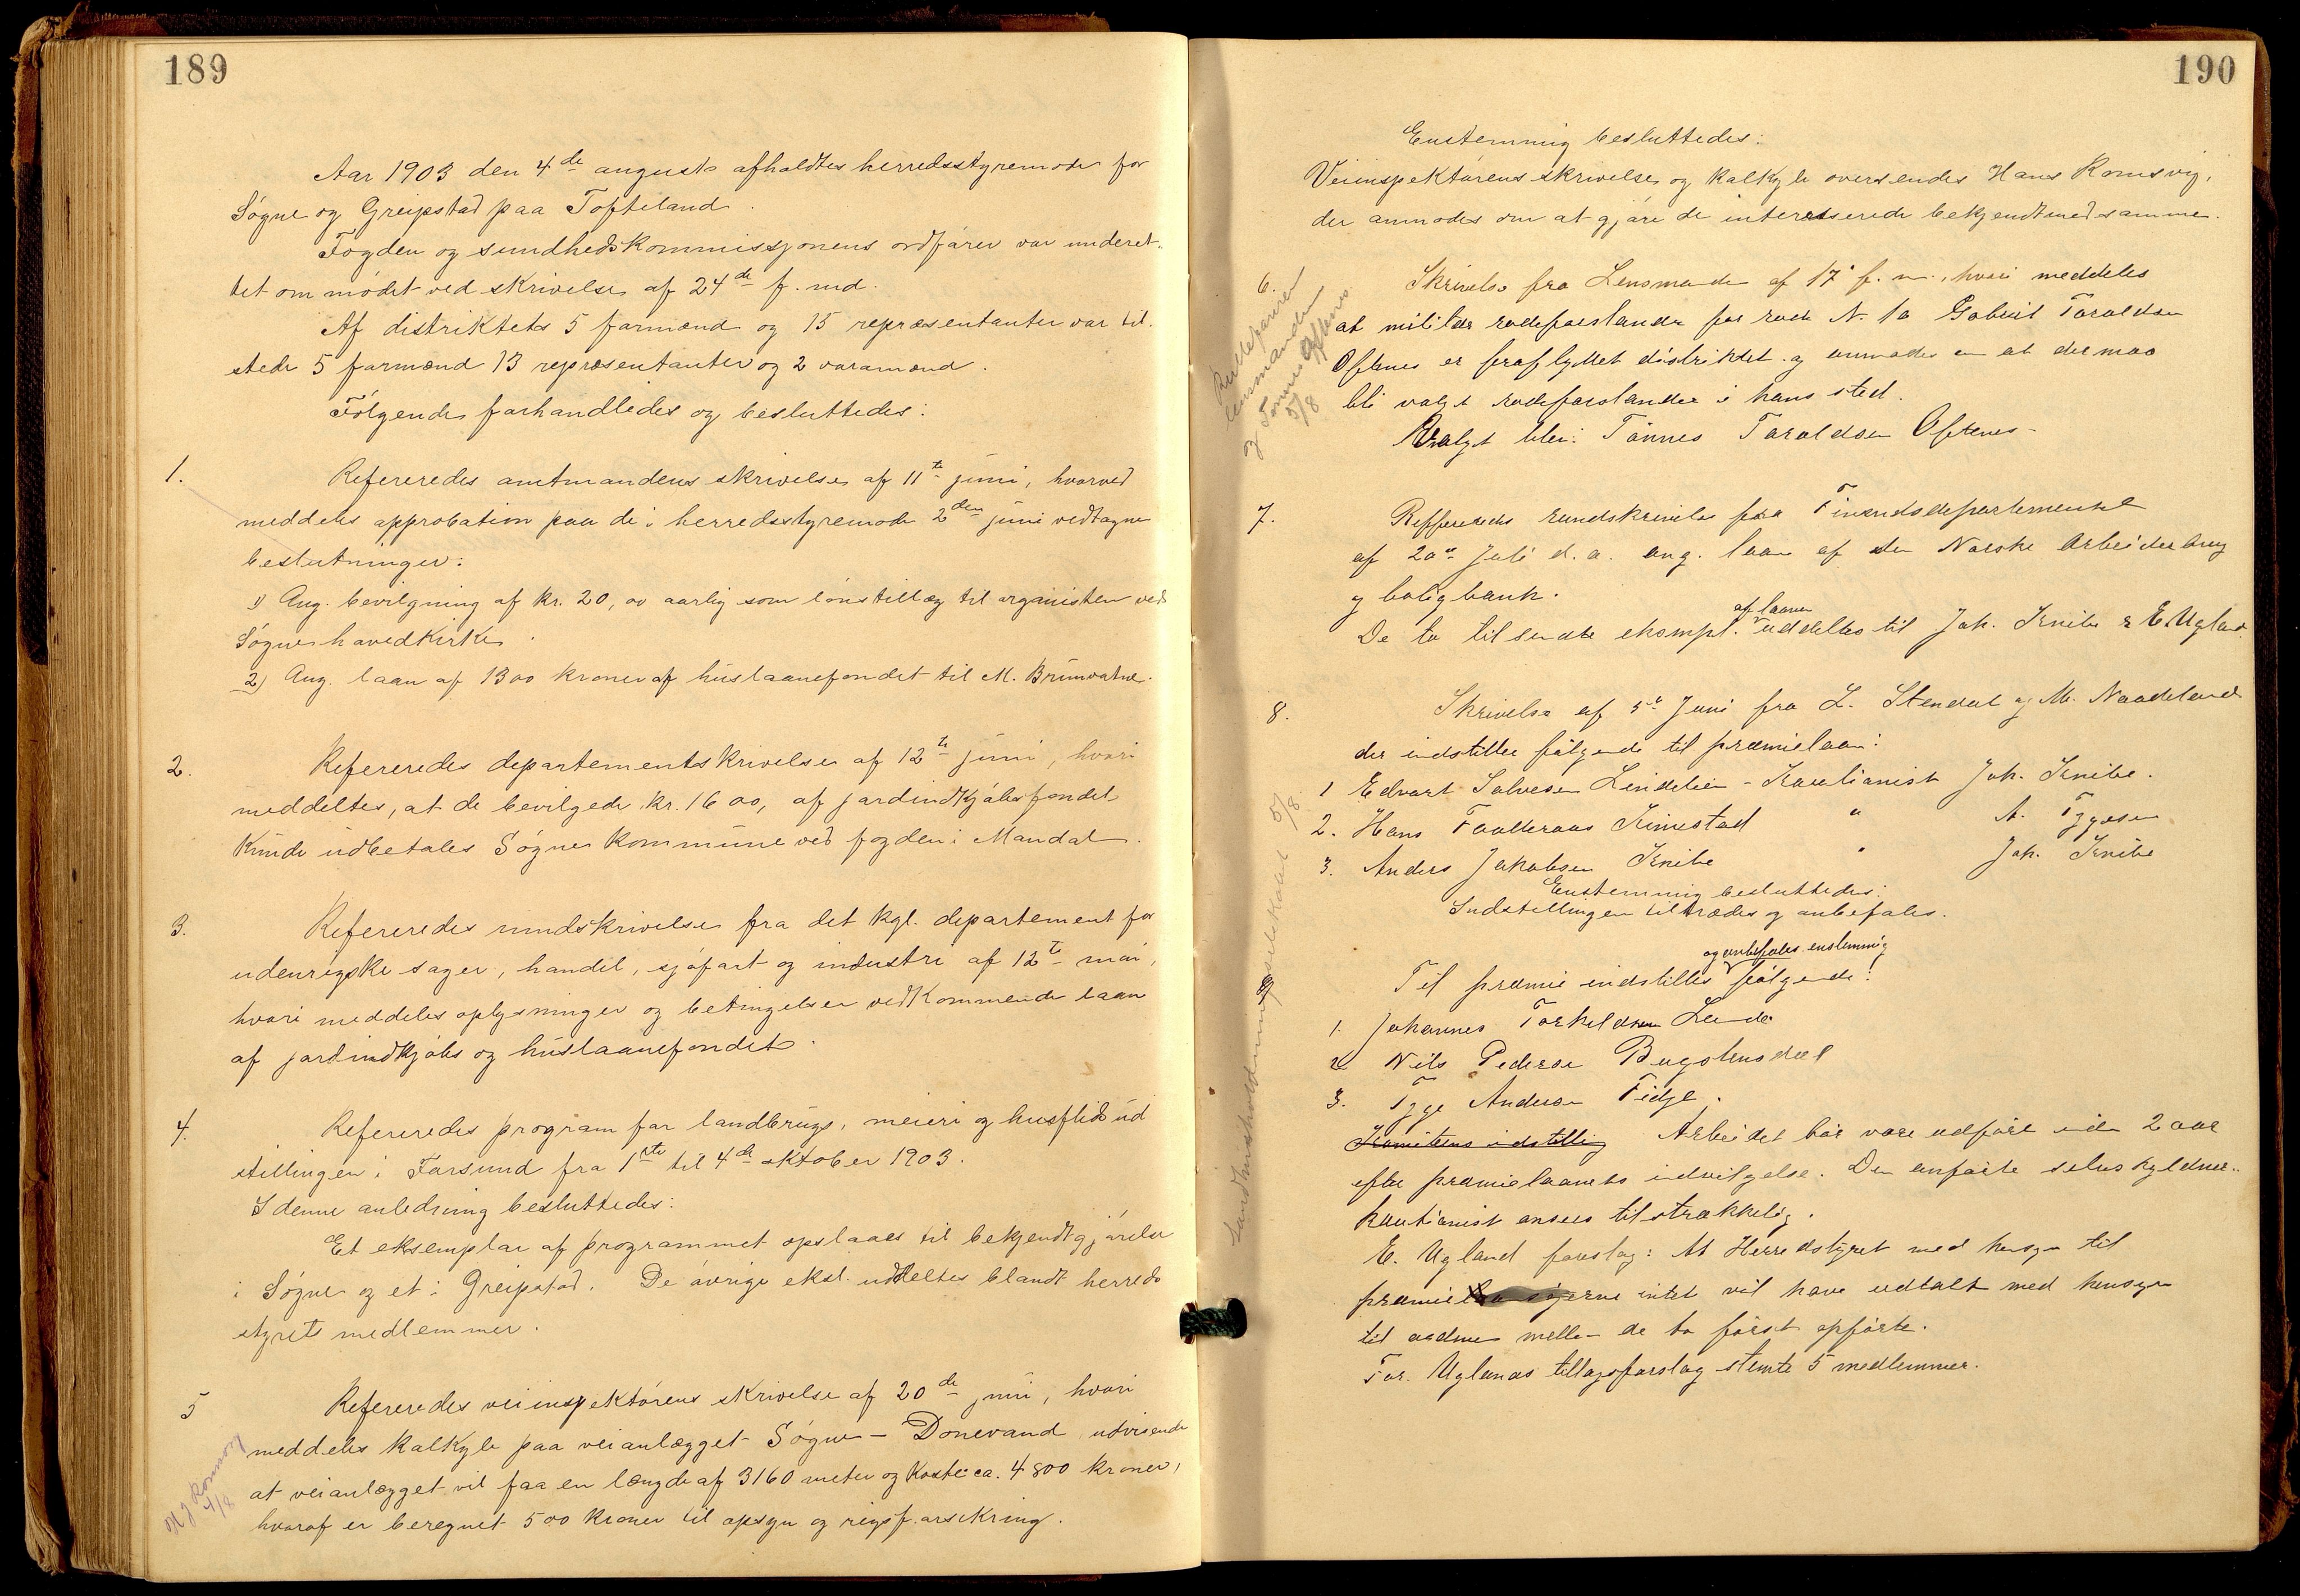 189
Aar 1903 den 4de august afholdtes herredsstyremøde for
Søgne og Greipstad paa Tofteland.
Fogden og sundhedskommissjonens ordfører var underet-
tet om mødet ved skrivelse af 24de f. md.
Af distriktets 5 formænd og 15 repræsentanter var til-
stede 5 formænd 13 repræsentanter og 2 varamænd.
Følgende forhandledes og besluttedes:
1. Refereredes amtmandens skrivelse af 11te juni, hvorved
meddeles approbation paa de i herredsstyremøde 2den juni vedtagne
beslutninger:
1) Ang. bevilgning af kr. 20,00 aarlig som lønstillæg til organisten ved
Søgne hovedkirke.
2) Ang. laan af 1300 kroner af huslaanefondet til M. Brunvatne.
2. Refereredes departementskrivelse af 12te juni, hvori
meddeltes, at de bevilgede kr. 1600, af jordindkjøbsfondet
kunde udbetales Søgne kommune ved fogden i Mandal.
3. Refereredes rundskrivelse fra det kgl. departement for
udenrigske sager, handel, sjøfart og industri af 12te mai,
hvori meddeles oplysninger og betingelser vedkommende laan
af jordindkjøbs og huslaanefondet.
4. Refereredes program for landbrugs, meieri og husflids ud
stillingen i Farsund fra 1ste til 4de oktober 1903.
I denne anledning besluttedes:
Et eksemplar af programmet opslaaes til bekjendtgjørelse
i Søgne og et i Greipstad. De øvrige eksl. uddeltes blandt herreds
styrets medlemmer.
5 Refereredes veiinspektørens skrivelse af 20de juni, hvori
meddeles kalkyle paa veianlægget Søgne - Donevand udvisende
at veianlægget vil faa en længde af 3160 meter og koste ca. 4800 kroner,
hvoraf er beregnet 500 kroner til opsyn og rigsforsikring.
H J Romsvig
4/8
190
Enstemmig besluttedes:
Veiinspektørens skrivelse og kalkyle oversendes Hans Romsvig,
der anmodes om at gjøre de interesserede bekjendt med samme.
6. Skrivelse fra Lensmanden af 17 f. m., hvori meddeles
at militær rodeforstander for rode N. 10 Gabriel Taraldsen
Oftenes er fraflyttet distriktet og anmodes om at der maa
bli valgt rodeforstander i hans sted.
Valgt blev: Tønnes Taraldsen Oftenes-
lensmanden
og Tønnes Oftenes
5/8
7. Reffereredes rundskrivelse fra Finansdepartementet
af 20de Juli d.a. ang. laan af den Norske Arbeiderbrug
og boligbank.
De to tilsendte eksempl. af laanen uddeltes til Joh. Knibe & E. Ugland.
8. Skrivelse af 5te Juni fra L. Stendal og M. Naadeland
der indstiller følgende til præmielaan:
1 Edvart Salvesen Lindelien - Kautionist Joh. Knibe.
2. Hans Kimestad " A. Tygesen
3. Anders Jakobsen Knibe " Joh. Knibe
Enstemmig besluttedes:
Indstillingen tiltrædes og anbefales.
Til præmie indstilles og anbefales enstemmig følgende:
1. Johannes Torkeldsen Lunde
2 Nils Pedersen
3. Tygge Andersen Tidje.
Komiteens indstilling Arbeidet bør være udført inden 2 aar
efter præmielaanets indvilgelse. Den anførte selvskyldner-
kautionist ansees tilstrækkelig.
E. Ugland foreslog: At Herredstyret med hensyn til
præmie intet vil have udtalt med hensyn
til ordnen mellem de to først opførte.
For Uglands tillægsforslag stemte 5 medlemmer.
Landhusholdningselskabet 5/8